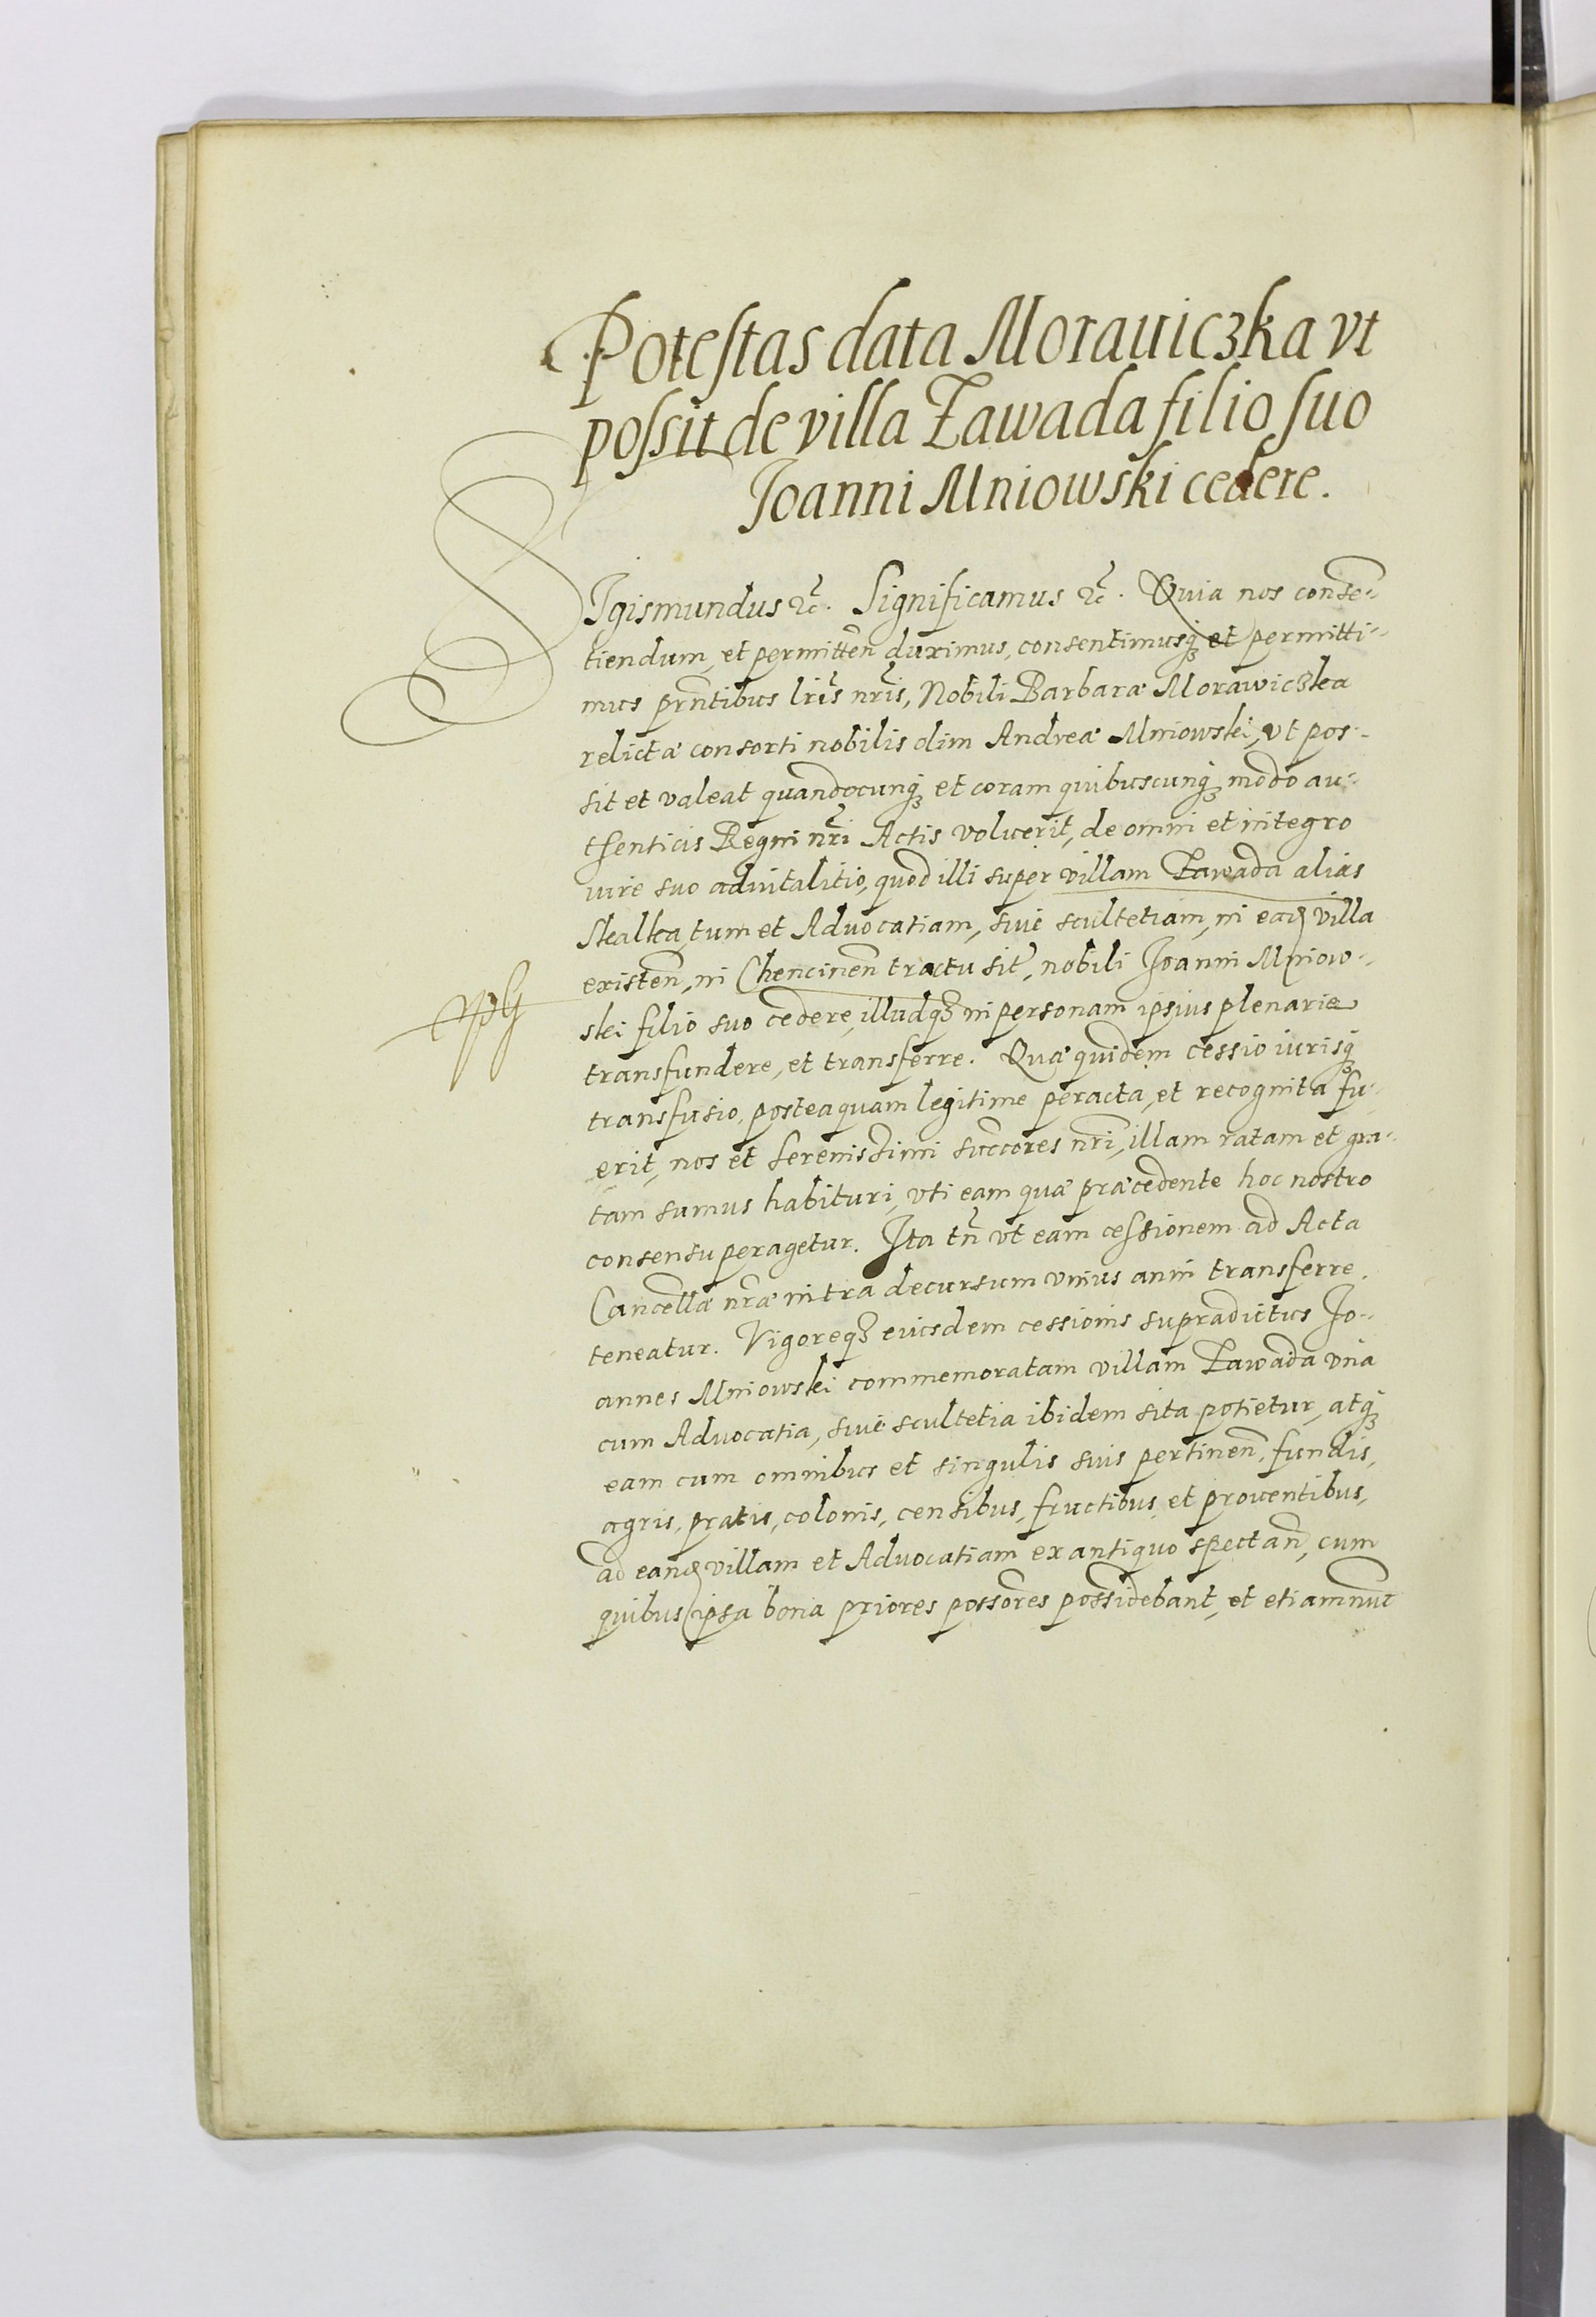 Potestas data Morauiczka vt
possit de villa Zawada filio suo
Joanni Mniowski cedere.
SIgismundus &c̃. Significamus &c̃. Quia nos consen-
tiendum, et permitteñ duximus, consentimusq; et permitti-
mus pñtibus lr̃is nr̃is, Nobili Barbaræ Morawiczka
relictæ consorti nobilis olim Andreæ Mniowski, vt pos-
sit et valeat quandocunq; et coram quibuscunq; modo au-
thenticis Regni nr̃i Actis voluerit, de omni et integro
iure suo aduitalitio, quod illi super villam Zawada alias
Skalka, tum et Aduocatiam, siue scultetiam, in ead. villa
existeñ, in Chencineñ tractu sit̃, nobili Joanni Mniow-
ski filio suo cedere, illudq; in personam ipsius plenarie
transfundere, et transferre. Quæ quidem cessio iurisq;
transfusio, posteaquam legitime peracta, et recognita fu-
erit, nos et Serenissimi succores nr̃i, illam ratam et gra-
tam sumus habituri, vti eam quæ præcedente hoc nostro
consensu peragetur. Ita tñ vt eam cessionem ad Acta
Cancellæ nr̃æ intra decursum vnius anni transferre
teneatur. Vigoreq; eiusdem cessionis supradictus Jo-
annes Mniowski commemoratam villam Zawada vna
cum Aduocatia, siue scultetia ibidem sita potietur, atq;
eam cum omnibus et singulis suis pertineñ, fundis,
agris, pratis, colonis, censibus, fructibus, et prouentibus,
ad eand. villam et Aduocatiam ex antiquo spectañ, cum
quibus ipsa bona priores possores possidebant, et etiamnunc